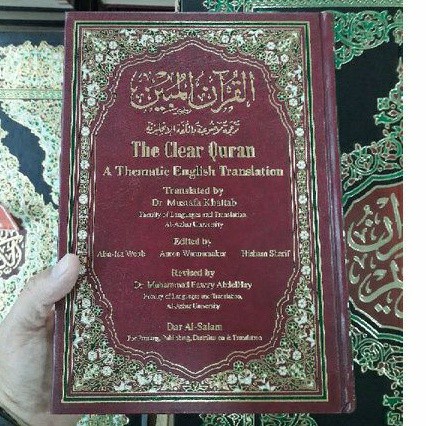 القرآن المبين
ترجمة موضوعية باللغة الإنجليزية
The Clear Quran
A Thematic English Translation
Translated by
Dr. Mustafa Khattab
Faculty of Languages and Translation,
Al-Azhar University
Edited by
Abu-Isa Webb Aaron Wannamaker Hisham Sharif
Revised by
Dr. Muhammad Fawzy AbdelHay
Faculty of Languages and Translation,
Al-Azhar University
Dar Al-Salam
For Printing, Publishing, Distribution & Translation